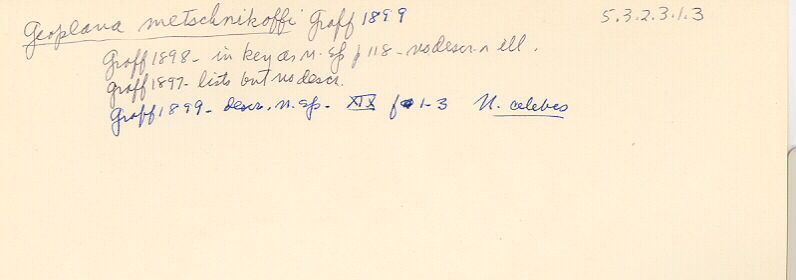 Geoplana metschnikoffi Graff 1899 5.3.2.3.1.3
Graff 1898 - in key as n. sp p 118 - no descr. n ill.
Graff 1897 - lists but no descr.
Graff 1899 - descr. n. sp. - XIX f 1-3 N. celebes